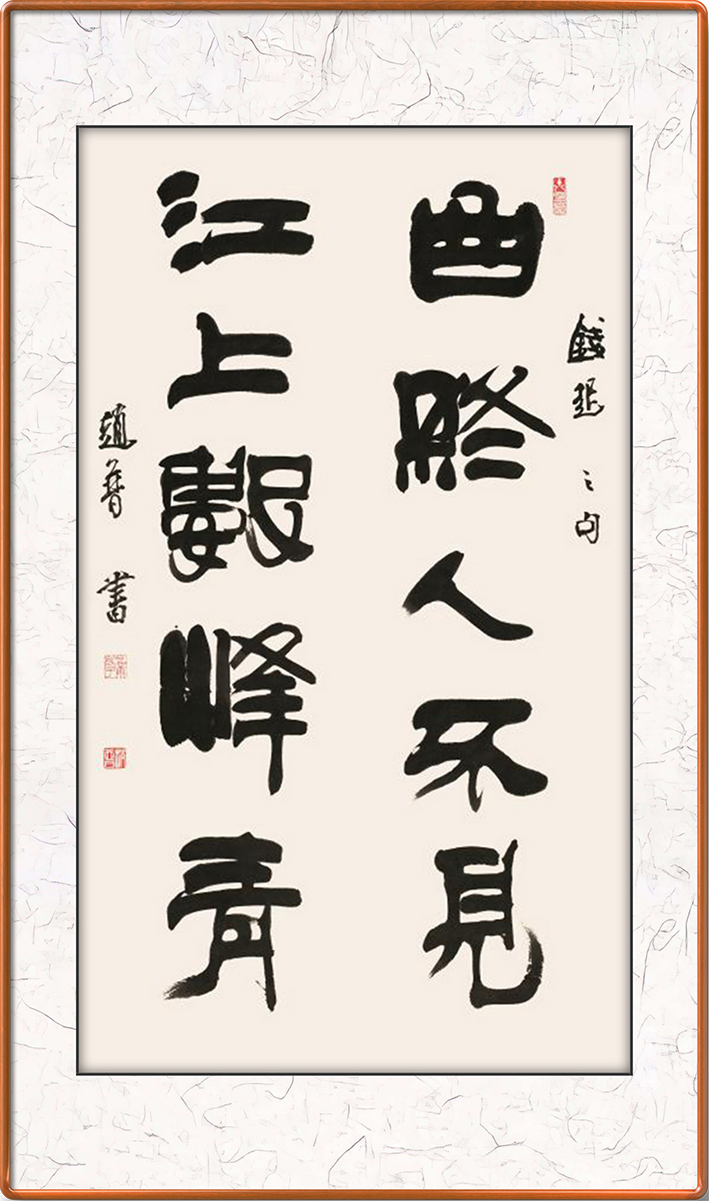 錢起之句
曲終人不見
江上數峰青
趙普書